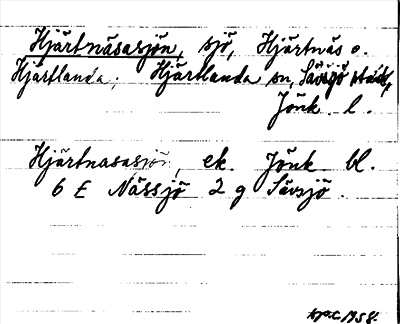 Hjärtnäsasjön, sjö, Hjärtnäs o.
Hjärtlanda; Hjärtlanda sn, Sävsjö stad,
Jönk. l.
Hjärtnasasjön, ek. Jönk. bl.
6 E Nässjö 2 g Sävsjö.
1958.